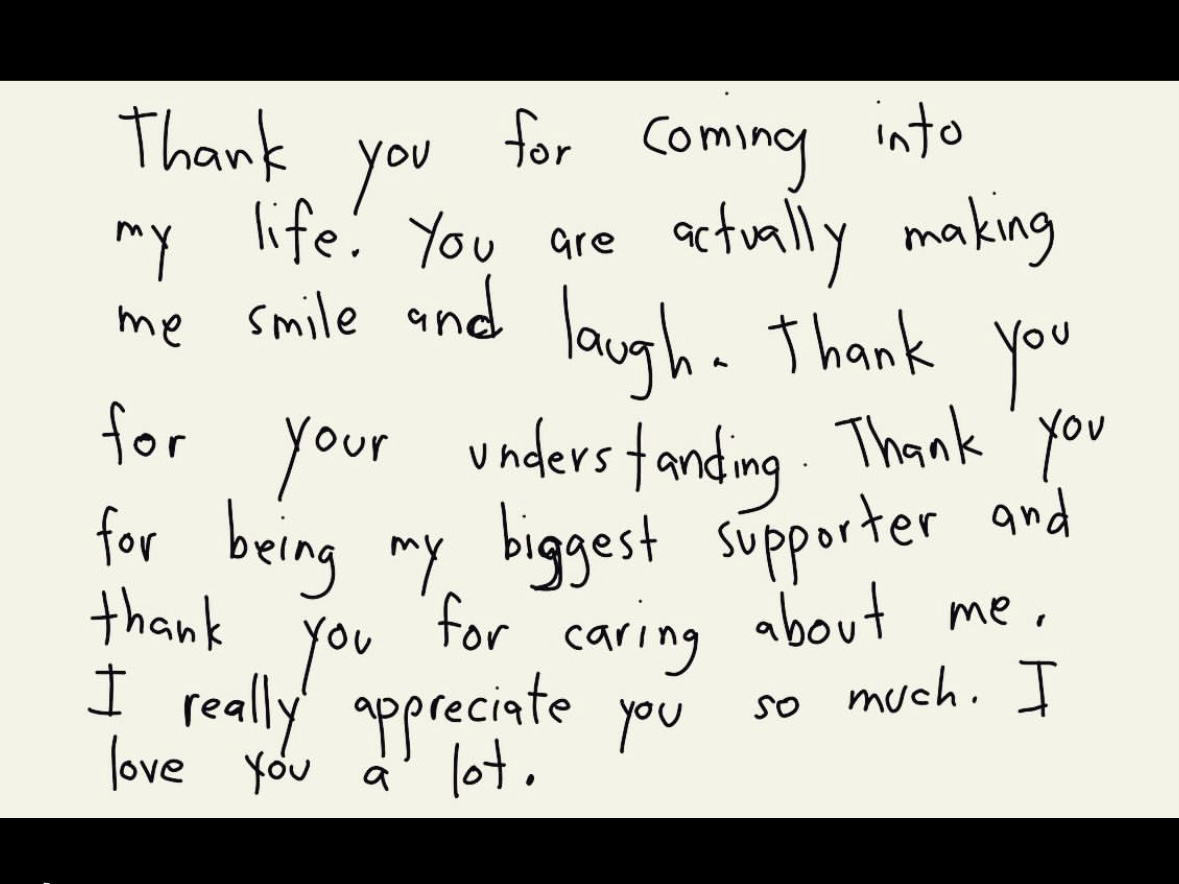 Thank you for coming into
my life. You are actually making
me smile and laugh. Thank you
for your understanding. Thank you
for being my biggest supporter and
thank you for caring about me.
I really appreciate you so much. I
love you a lot.